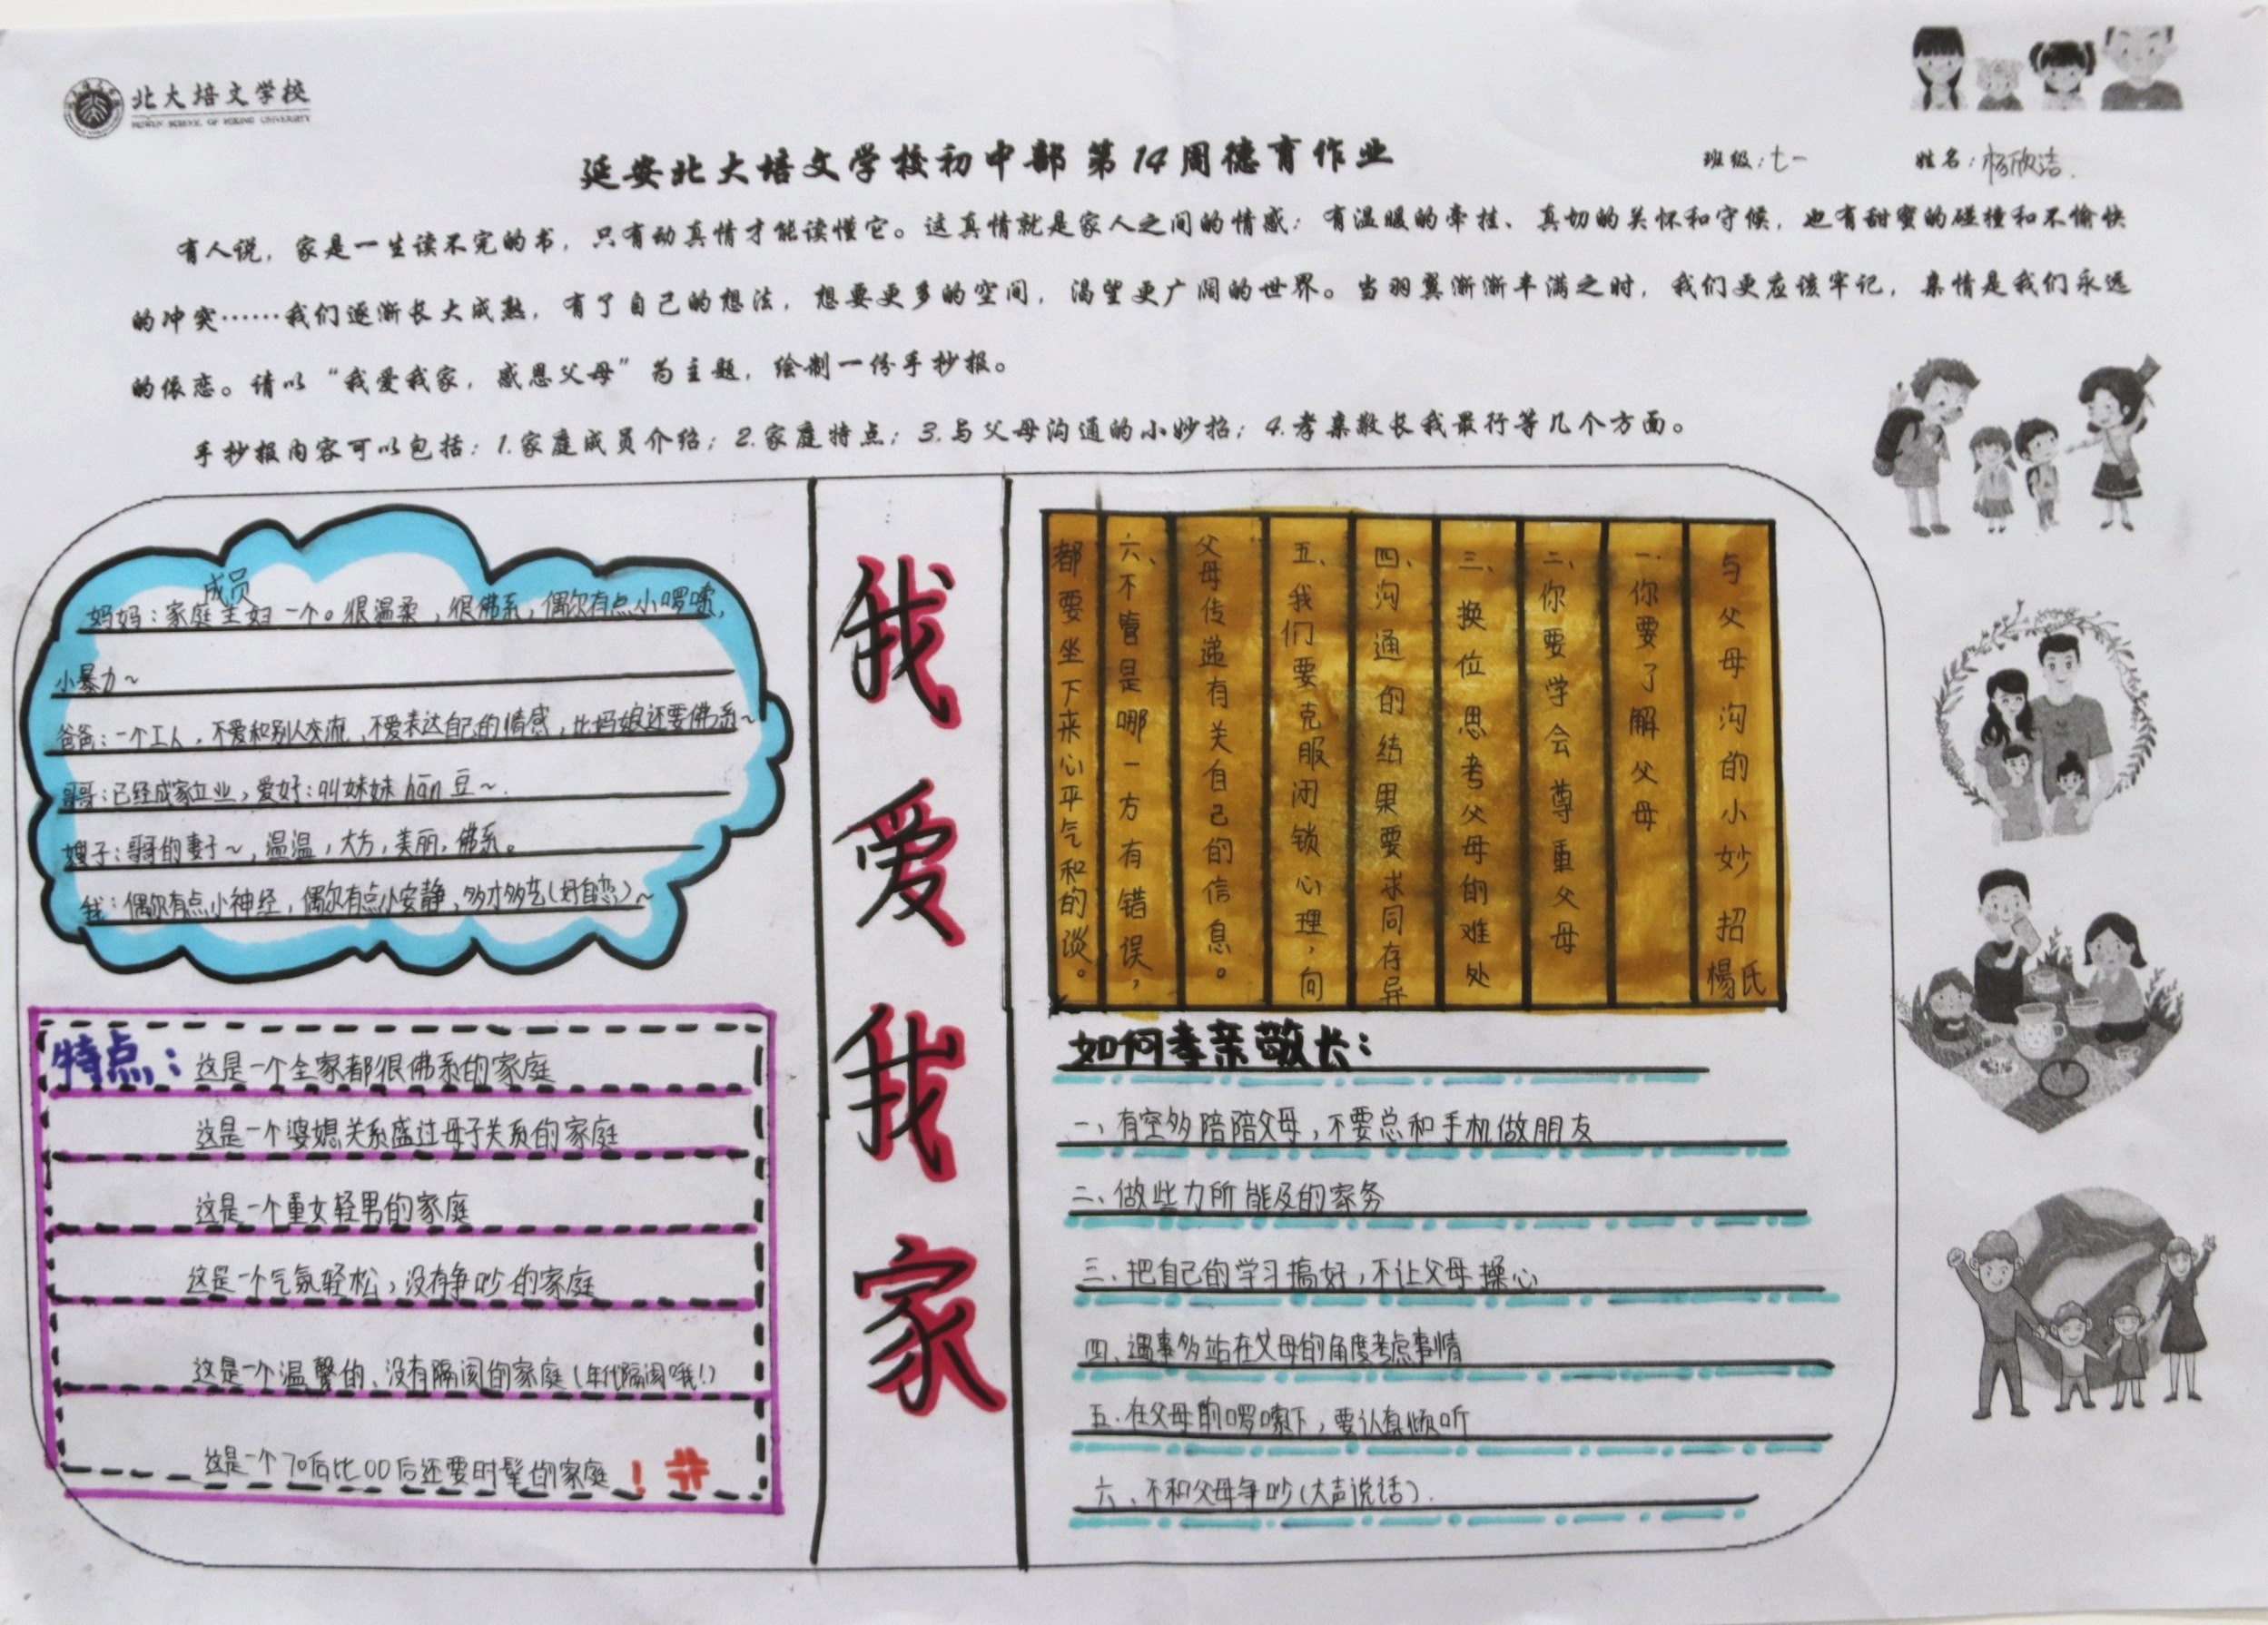 北大培文学校
PEIWEN SCHOOL OF PEKING UNIVERSITY
延安北大培文学校初中部第14周德育作业
班级：七一
姓名：杨欣洁.
有人说，家是一生读不完的书，只有动真情才能读懂它。这真情就是家人之间的情感：有温暖的牵挂、真切的关怀和守候，也有甜蜜的碰撞和不愉快
的冲突……我们逐渐长大成熟，有了自己的想法，想要更多的空间，渴望更广阔的世界。当羽翼渐渐丰满之时，我们更应该牢记，亲情是我们永远
的依恋。请以“我爱我家，感恩父母”为主题，绘制一份手抄报。
手抄报内容可以包括：1.家庭成员介绍；2.家庭特点；3.与父母沟通的小妙招；4.孝亲敬长我最行等几个方面。
成员
妈妈：家庭主妇一个。很温柔，很佛系，偶尔有点小啰嗦，
小暴力～
爸爸：一个工人，不爱和别人交流，不爱表达自己的情感，比妈娘还要佛系～
哥哥：已经成家立业，爱好：叫妹妹hān豆～.
嫂子：哥哥的妻子～，温温，大方，美丽，佛系。
我：偶尔有点小神经，偶尔有点小安静，多才多艺（好自恋）～
特点：这是一个全家都很佛系的家庭
这是一个婆媳关系盛过母子关系的家庭
这是一个重女轻男的家庭
这是一个气氛轻松，没有争吵的家庭
这是一个温馨的、没有隔阂的家庭（年代隔阂哦！）
这是一个70后比00后还要时髦的家庭！
我爱我家
与父母沟的小妙招 楊氏
一.你要了解父母
二、你要学会尊重父母
三、换位思考父母的难处
四、沟通的结果要求同存异
五、我们要克服闭锁心理，向
父母传递有关自己的信息。
六、不管是哪一方有错误，
都要坐下来心平气和的谈。
如何孝亲敬长：
一、有空多陪陪父母，不要总和手机做朋友
二、做些力所能及的家务
三、把自己的学习搞好，不让父母操心
四、遇事多站在父母的角度考点事情
五.在父母的啰嗦下，要认真倾听
六、不和父母争吵（大声说话）.